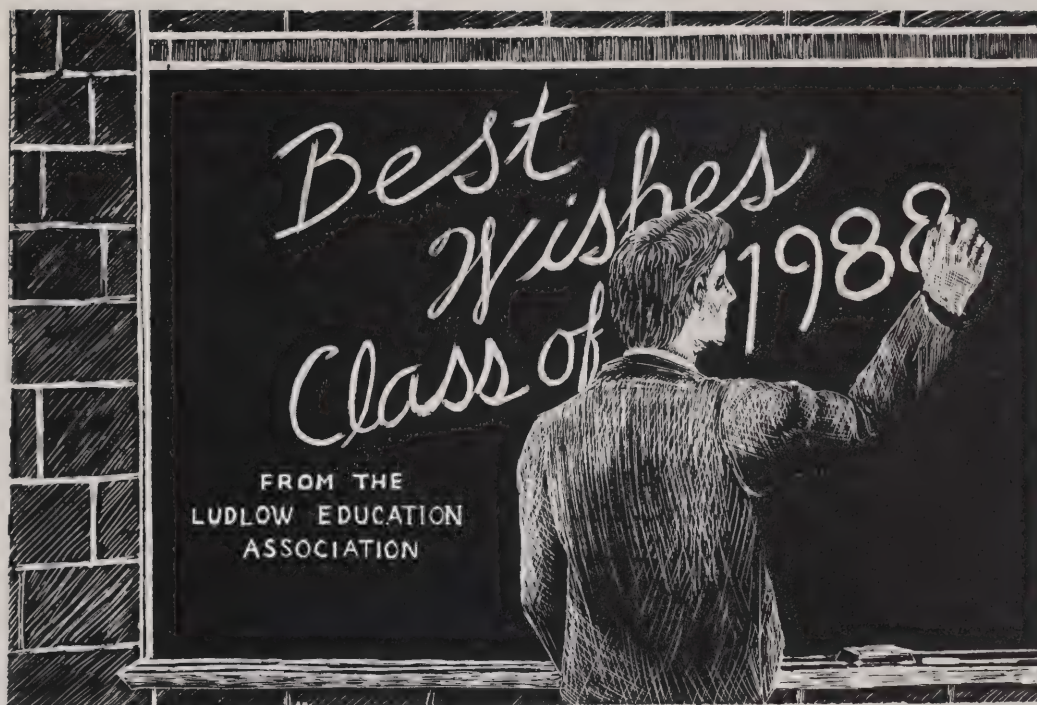 Best
Wishes
Class of 1988
FROM THE
LUDLOW EDUCATION
ASSOCIATION